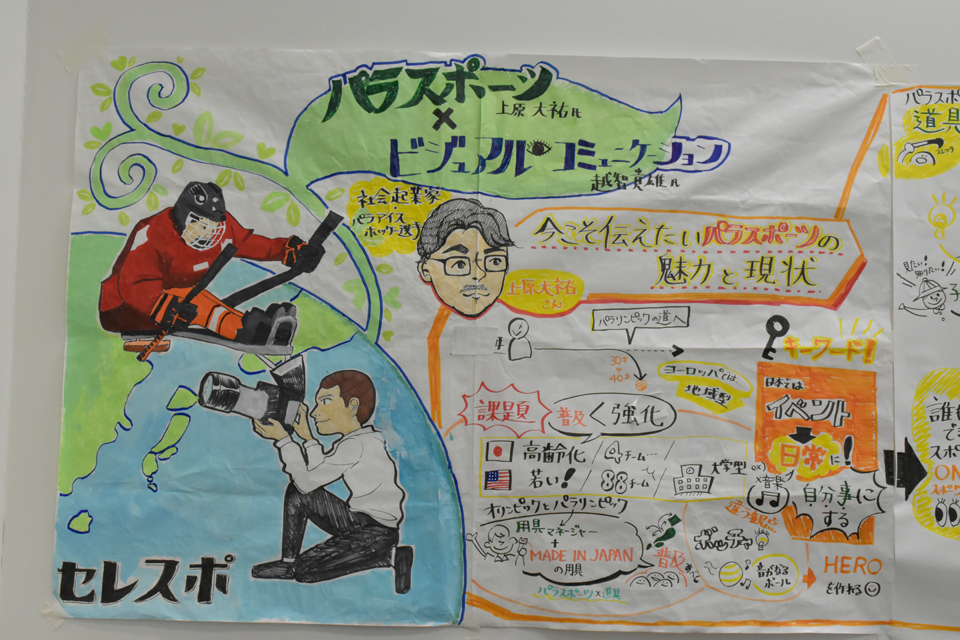 パラスポーツ
上原 大祐 ル
×
ビジュアル コミュニケーション
越智貴雄 ル
社会起業家
・
パラアイス
ホッケー選手
上原大祐
さん
今こそ伝えたいパラスポーツの
魅力と現状
パラリンピックの道へ
30才
40才
ヨーロッパでは
地域型
キーワード!
日本では
イベント
日常に!
自分事に
する
課題
普及く強化
高齢化/4チーム…
若い!/88チーム
大学型
オリンピックとパラリンピック
用具マネージャー
+
MADE IN JAPAN
の用具
普及
パラスポーツ×道具
ex)
×音楽
違う観点
音がなる
ボール
HERO
を作れる
セレスポ
パラスポ
道具
見たい!
知りたい!
子
誰も
でき
スポ
ON